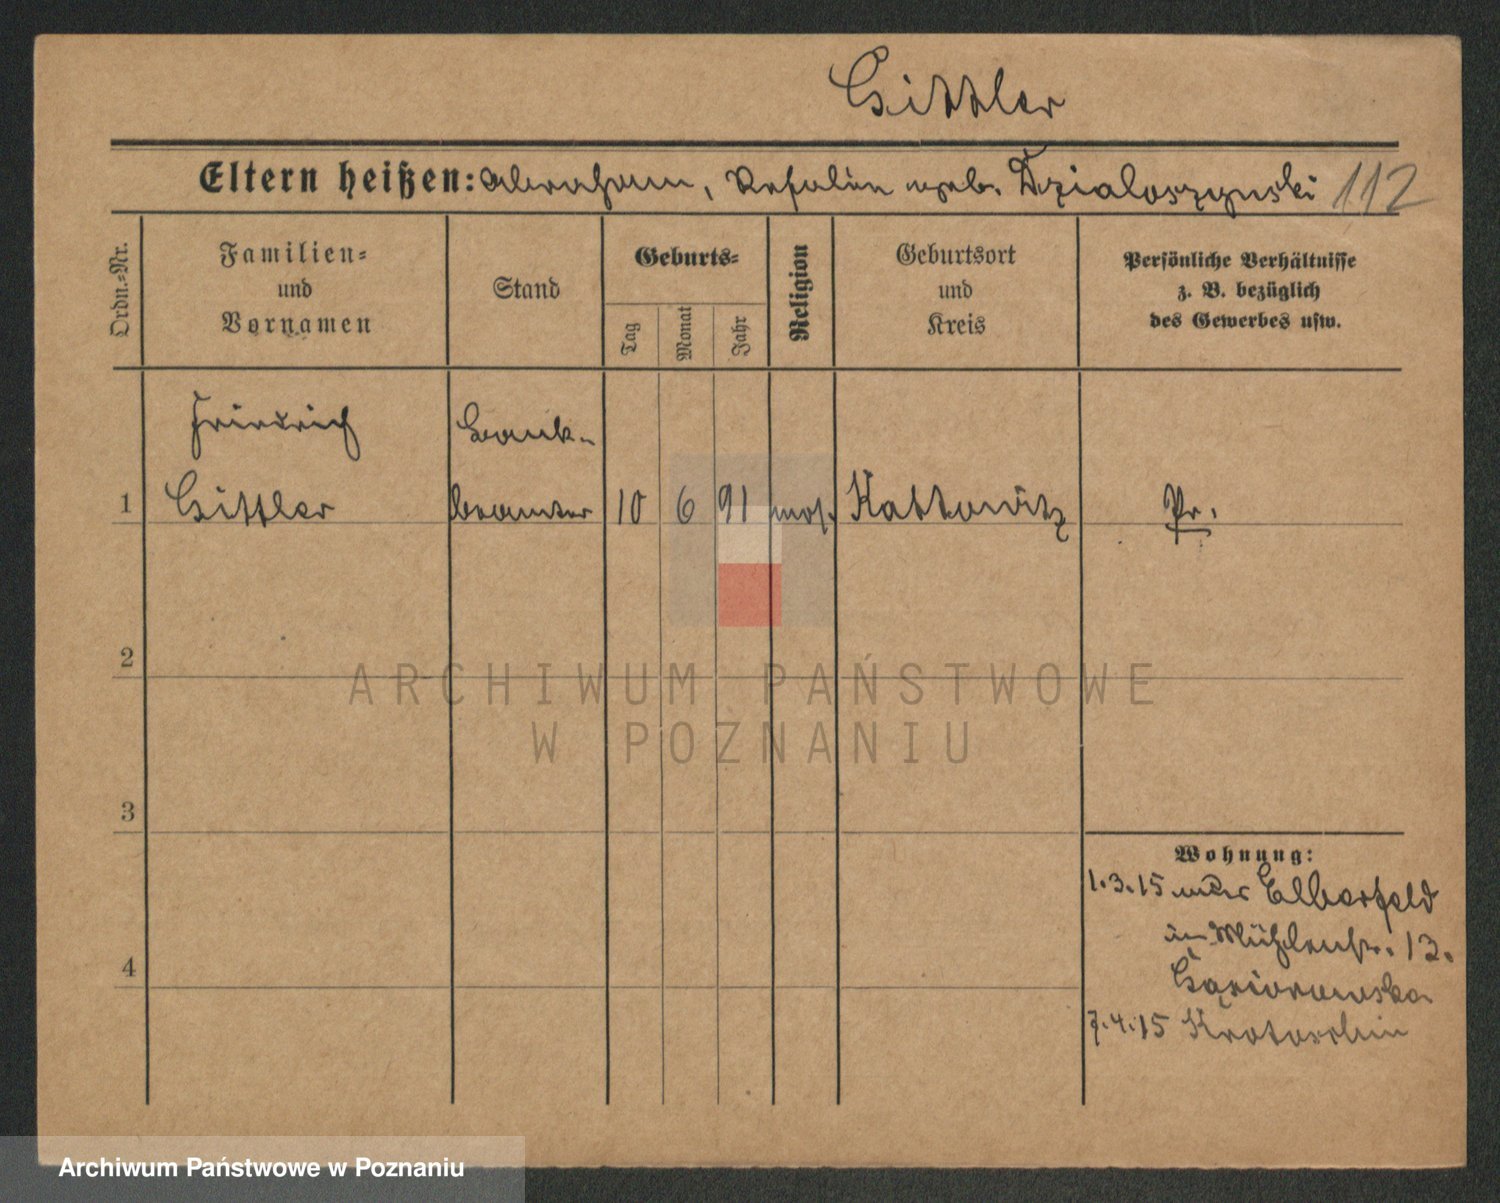 Gittler
Eltern heißen: Abraham, Rosalie geb. Dzialoszynski 112
Ordn.-Nr.
Familien- und Vornamen
Stand
Geburts-
Tag
Monat
Jahr
Religion
Geburtsort und Kreis
Persönliche Verhältnisse z. B. bezüglich des Gewerbes usw.
Friedrich Bank-
1 Gittler beamter 10 6 91 mos. Kattowitz Pr.
2
3
4
Wohnung:
1.3.15 Elberfeld
Mühlenstr. 13.
7.4.15 Krotoschin
ARCHIWUM PAŃSTWOWE
W POZNANIU
Archiwum Państwowe w Poznaniu